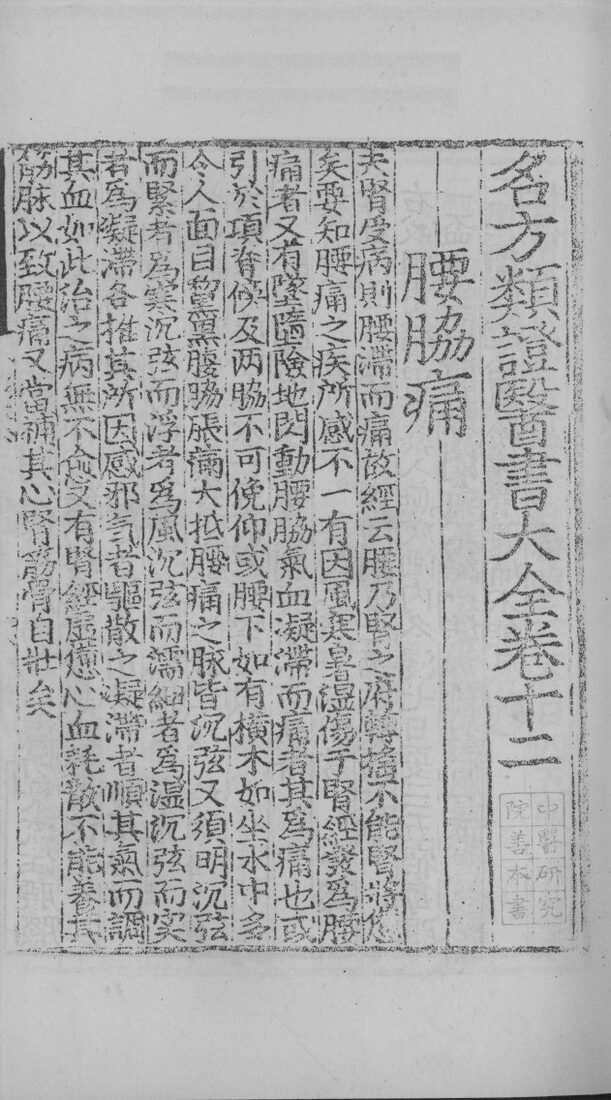 名方類證醫書大全卷十二
腰脇痛
夫腎受病則腰滯而痛故經云腰乃腎之府轉搖不能腎將憊
矣要知腰痛之疾所感不一有因風寒暑湿傷于腎經發爲腰
痛者又有墜墮險地閃動腰脇氣血凝滯而痛者其爲痛也或
引於項脊傍及两脇不可俛仰或腰下如有横木如坐水中多
令人面目黧黒腹脇脹滿大抵腰痛之脉皆沉弦又須明沉弦
而緊者爲寒沉弦而浮者爲風沉弦而濡細者爲温沉弦而实
者爲凝滯各推其所因感邪气者驅散之凝滯者順其氣而調
其血如此治之病無不愈又有腎經虚憊心血耗散不能養其
筋脉以致腰痛又當補其心腎筋骨自壯矣
中醫研究
院善本書